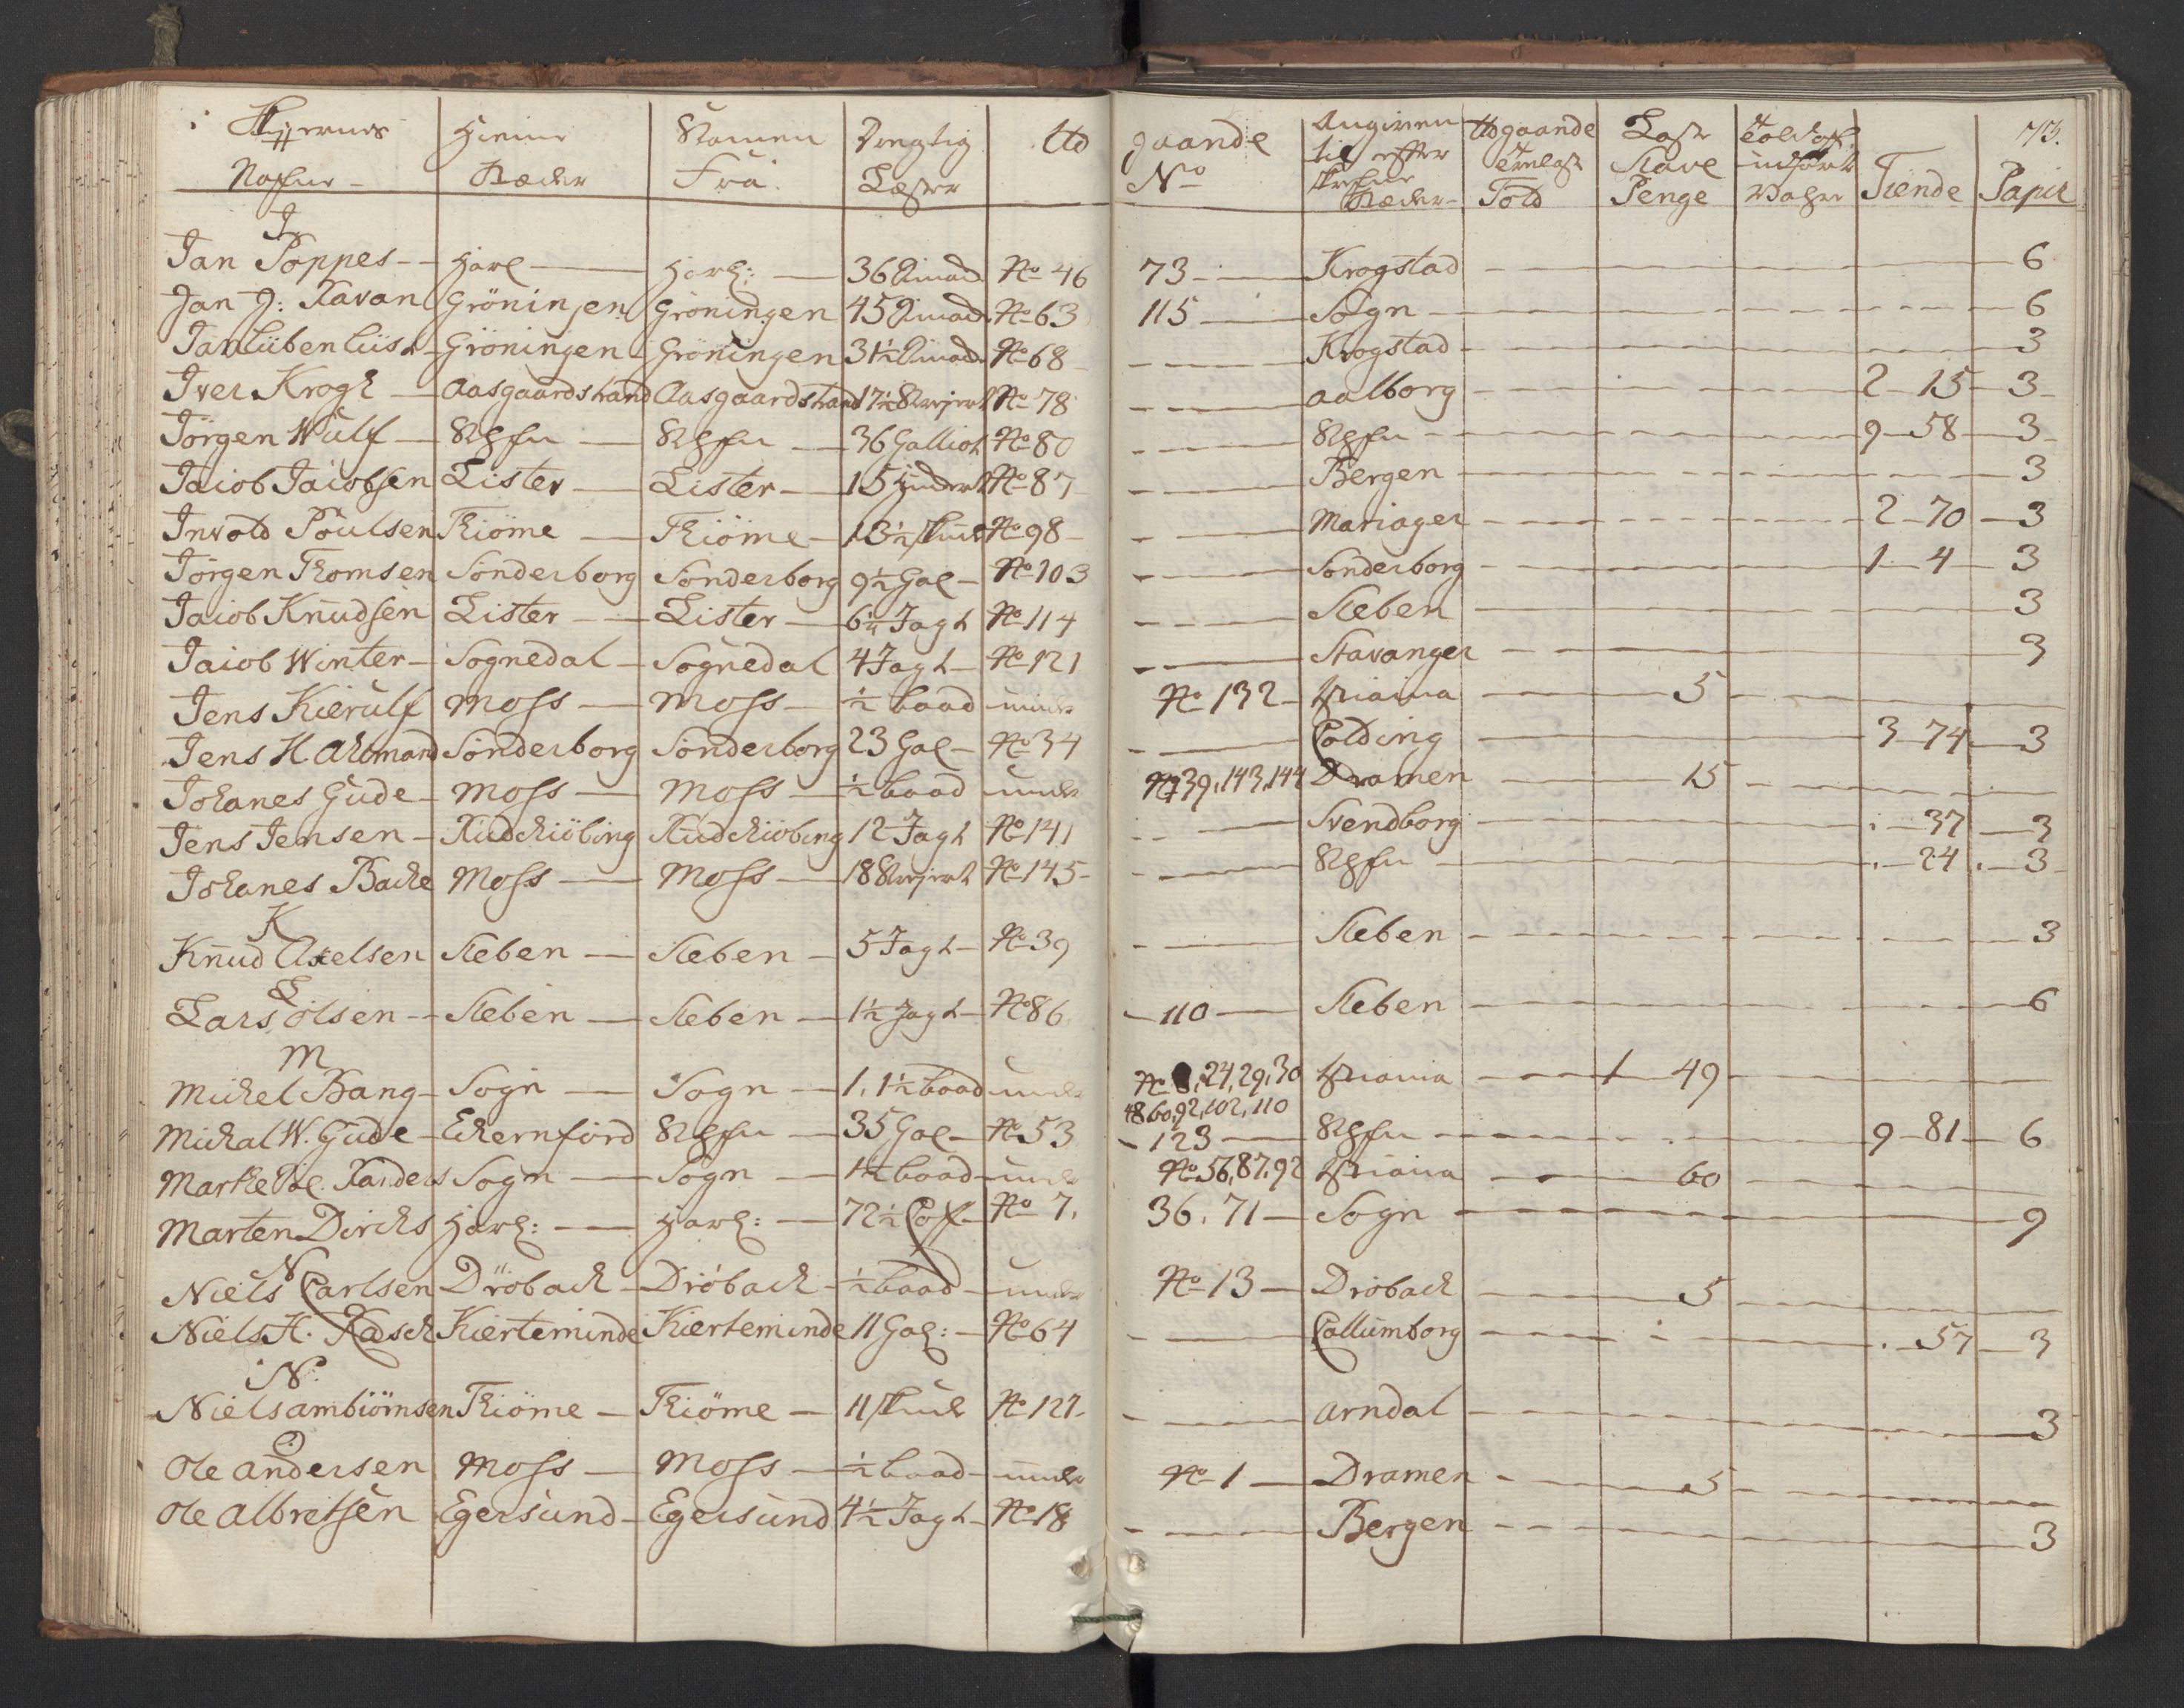 Skippernes Nafne Hiemme Stæder Kommen Fra Dregtig Læster Ud gaande No Angiven til efter Stæder Udgaande Told Last Penge Told af indført Tiende Papir 73.
J
Jan Poppes Harl Harl: 36 Smak No 46 73 Krogstad 6
Jan J: Kavan Gröningen Gröningen 45 Smak No 63 115 Sogn 6
Jan Lüben Gröningen Gröningen 31½ Smak No 68 Krogstad 3
Iver Krogh Aasgaardstrand Aasgaardstrand 17½ Krejert No 78 Aalborg 2 15 3
Jörgen Wulf Khfn Khfn 36 Galliot No 80 Khfn 9 58 3
Jaiob Jaiobsen Lister Lister 15 Hukert No 87 Bergen 3
Invold Poulsen Thiöme Thiöme 13½ Skude No 98 Mariager 2 70 3
Jörgen Thomsen Sönderborg Sönderborg 9½ Gal No 103 Sönderborg 1 4 3
Jaiob Knudsen Lister Lister 6¼ Jagt No 114 Steben 3
Jaiob Winter Sognedal Sognedal 4 Jagt No 121 Stavanger 3
Jens Kierulf Moss Moss ½ baad No 132 Xtiania 5
Jens H. Ahlmand Sönderborg Sönderborg 23 Gal No 34 Colding 3 74 3
Johanes Gude Moss Moss ½ baad No 139, 143, 144 Dramen 15
Jens Jensen Rudckiöbing Rudckiöbing 12 Jagt No 141 Svendborg 37 3
Johanes Backe Moss Moss 18 Krejert No 145 Khfn 24 3
K
Knud Axelsen Steben Steben 5 Jagt No 39 Steben 3
L
Lars Olsen Steben Steben 1½ Jagt No 86 110 Steben 6
M
Michel Bang Sogn Sogn 1, 1½ baad No 8, 24, 29, 30 Xtiania 1 49
48, 60, 92, 102, 110
Michal W. Gude Eckernförd Khfn 35 Gal No 53 123 Khfn 9 81 6
Marthe Randers Sogn Sogn 1½ baad No 56, 87, 92 Xtiania 60
Marten Dircks Harl: Harl: 72½ Coff No 7, 36, 71 Sogn 9
N
Niels Carlsen Dröback Dröback ½ baad No 13 Dröback 5
Niels H. Rasch Kierteminde Kierteminde 11 Gal: No 64 Callumborg 57 3
N
Niels Ambiörnsen Thiöme Thiöme 11 Skude No 127 Arndal 3
O
Ole Andersen Moss Moss ½ baad No 1 Dramen 5
Ole Albretsen Egersund Egersund 4½ Jagt No 18 Bergen 3